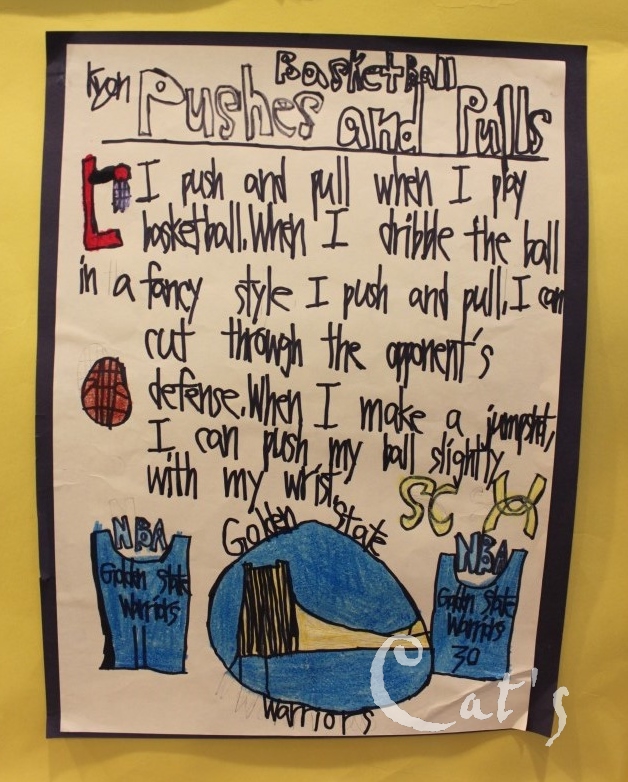 Basketball
Kyon Pushes and Pulls
I push and pull when I play
basketball. When I dribble the ball
in a fancy style I push and pull. I can
cut through the opponent's
defense. When I make a jumpshot,
I can push my ball slightly
with my wrist.
SC
Golden State
NBA
Golden State
Warriors
11
NBA
Golden State
Warriors
30
Warriors
Cat's